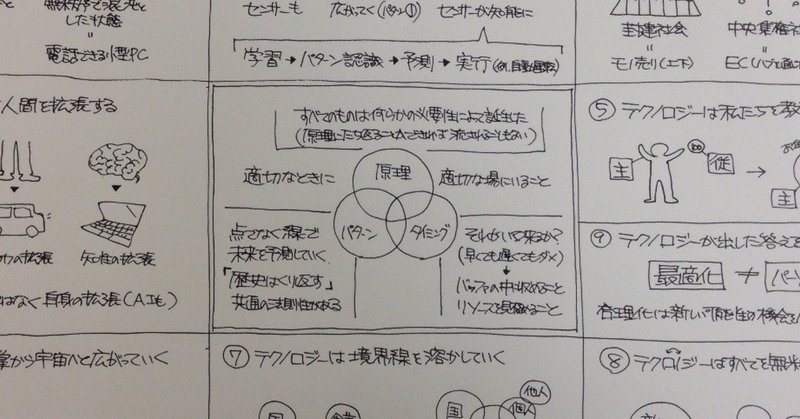 した状態
電話できる小型PC
センサーも 広がってく(パターン①) センサーが知能に
学習→パターン認識→予測→実行
封建社会
モノ売り(上下)
人間を拡張する
知性の拡張
自身の拡張(AIも)
すべてのものは何らかの必要性によって誕生した
(原理にたち返ることができれば流されることもない)
適切なときに
原理
適切な場にいること
パターン
タイミング
点でなく線で
未来を予測していく
「歴史はくり返す」
共通の法則性がある
それがいつ来るか?
(早くても遅くてもダメ)
バッファの中に収めること
リソースを見極めること
⑤ テクノロジーは私たちを教
主
従
→
主
⑨ テクノロジーが出した答える
最適化 ≠
合理化は新しい
宇宙へと広がっていく
⑦ テクノロジーは境界線を溶かしていく
国
国
個人
他人
⑧ テクノロジーはすべてを無料